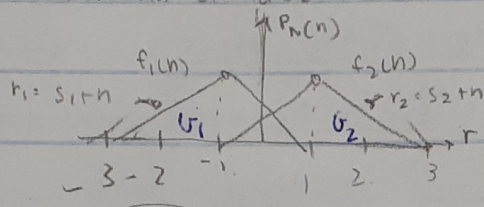 P_N(n)
f_1(n)
f_2(n)
r_1 = s_1 + n
r_2 = s_2 + n
υ_1
υ_2
r
-3 -2 -1 1 2 3